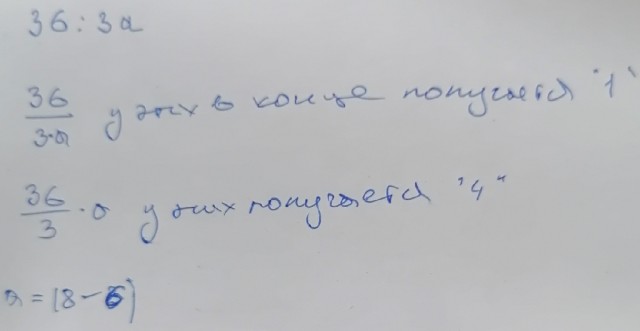 36 : 3a
36/3·a у этих в конце получается "1"
36/3 · a у этих получается "4"
a = (8 - 6)